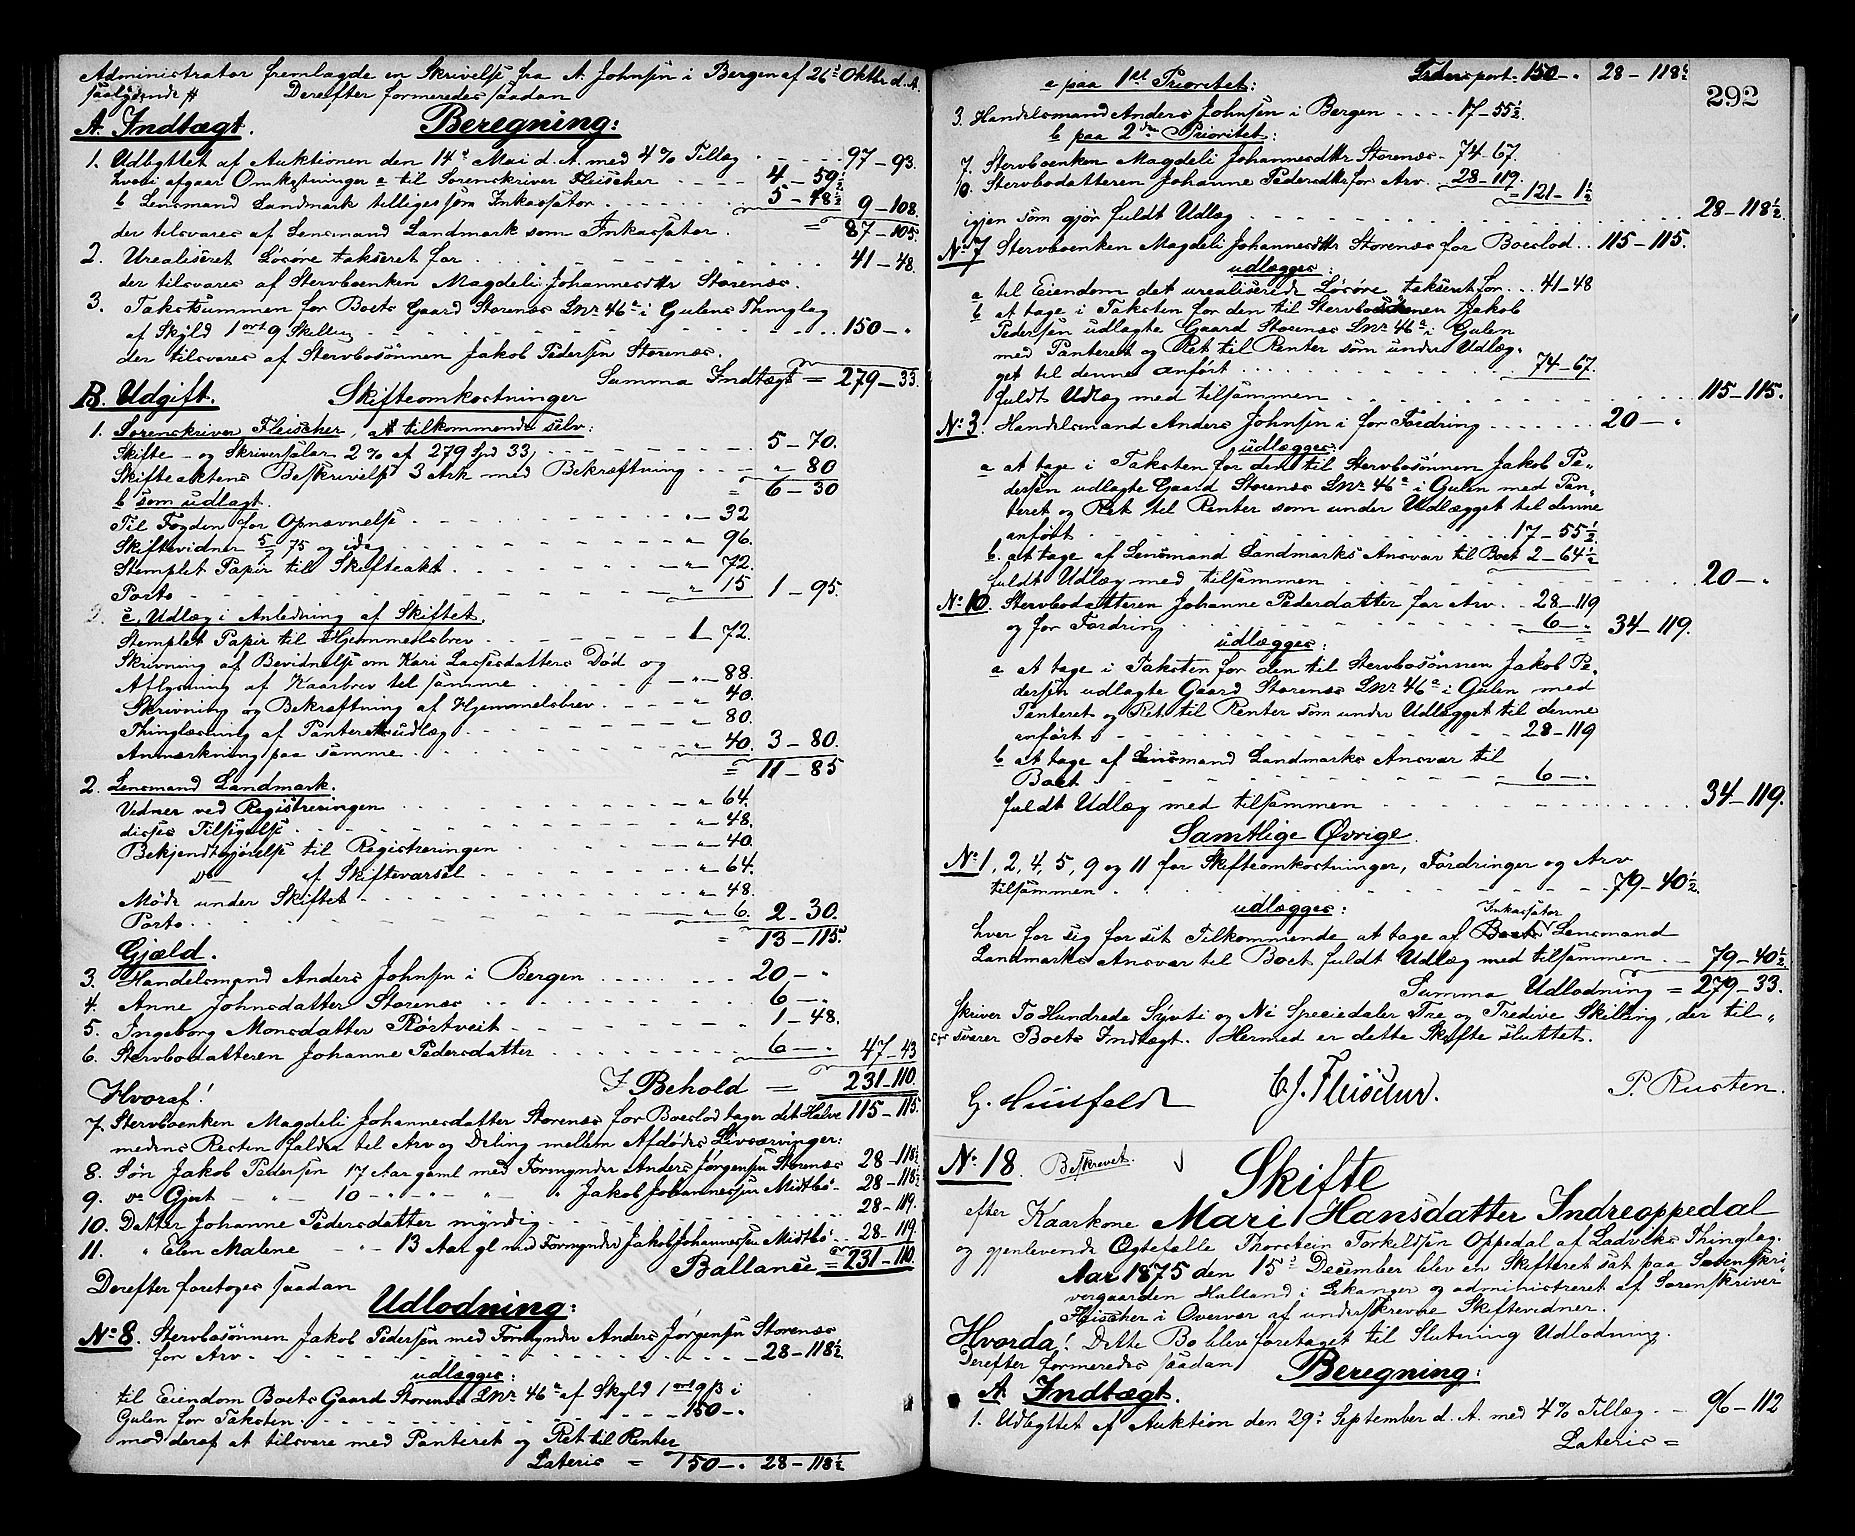 Administrator fremlagde en Skrivelse fra A. Johnsen i Bergen af 26: Oktbr d. A.
saalydende # Derefter formeredes saadan
Beregning:
A. Indtægt.
1. Udbyttet af Auktionen den 14: Mai d. A. med 4% Tillæg 97-93.
hvori afgaar Omkostninger a til Sorenskriver Fleischer 4-59½
b Lensmand Landmark tilligesom Inkassator 5-48½ 9-108.
der tilsvares af Lensmand Landmark som Inkassator = 87-105.
2. Urealiseret Løsøre takseret for 41-48.
der tilsvares af Stervboenken Magdeli Johannesdttr Storenæs.
3. Takstsummen for Boets Gaard Storenæs LNr. 46a i Gulens Thinglag
af Skyld 1 ort 9 Skilling 150-"
der tilsvares af Stervbosønnen Jakob Pedersen Storenæs.
Summa Indtægt = 279-33.
B. Udgift. Skifteomkostninger
1. Sorenskriver Fleischer, a tilkommende selv:
Skifte- og Skriversalær 2% af 279 Spd 33 5-70.
Skifteaktens Beskrivelse 3 Ark med Bekræftning " 80
= 6-30
b som udlagt.
Til Fogden for Opnævnelse "-32
Skiftevidner 5/7 75 og idag "-96.
Stemplet Papir til Skifteakt "-72.
Porto "-15 1-95.
c. Udlæg i Anledning af Skiftet.
Stemplet Papir til Hjemmelsbrev 1-72.
Skrivning af Bevidnelse om Kari Lassesdatters Død og
Aflysning af Kaarbrev til samme "-88.
Skrivning og Bekræftning af Hjemmelsbrev "-40.
Thinglæsning af Panteretsudlæg "-80.
Anmærkning paa samme "-40. 3-80.
= 11-85
2. Lensmand Landmark.
Vidner ved Registreringen "-64.
disses Tilsigelse "-48.
Bekjendtgjørelse til Registreringen "-40.
do af Skiftevarsel "-64.
Møde under Skiftet "-48.
Porto "-6. 2-30.
= 13-115.
Gjæld.
3. Handelsmand Anders Johnsen i Bergen 20-"
4. Anne Johnsdatter Storenæs 6-"
5. Ingeborg Monsdatter Rørtveit 1-48.
6. Stervbodatteren Johanne Pedersdatter 6-" 47-43
I Behold = 231-110.
Hvoraf!
7. Stervboenken Magdeli Johannesdatter Storenæs for Boeslod tager det Halve 115-115.
medens Resten falder til Arv og Deling mellem Afdødes Livsarvinger:
8. Søn Jakob Pedersen 17 Aar gaml med Formynder Anders Jørgensen Storenæs 28-118½
9. do Gjert - " - 10 - " - " " " Jakob Johannessen Midtbø 28-118½
10. Datter Johanne Pedersdatter myndig 28-119.
11. " Elen Malene - " - 13 Aar gl med Formynder Jakob Johannessen Midtbø 28-119.
Ballance = 231-110.
Derefter foretoges saadan
Udlodning:
No 8. Stervbosønnen Jakob Pedersen med Formynder Anders Jørgensen Storenæs
for Arv 28-118½
udlægges:
til Eiendom Boets Gaard Storenæs LNr. 46a af Skyld 1 ort 9 ß i
Gulen for Taksten 150-"
mod deraf at tilsvare med Panteret og Ret til Renter
Lateris = 150-" 28-118½
292
Transport 150-" 28-118½
a paa 1ste Prioritet:
3. Handelsmand Anders Johnsen i Bergen 17-55½
b paa 2den Prioritet:
7. Stervboenken Magdeli Johannesdttr Storenæs 74-67.
10. Stervbodatteren Johanne Pedersdttr for Arv 28-119 = 121-1½
igjen som gjør fuldt Udlæg 28-118½
No 7 Stervboenken Magdeli Johannesdttr Storenæs for Boeslod 115-115.
udlægges:
a til Eiendom det urealiserede Løsøre takseret for 41-48
b at tage i Taksten for den til Stervbosønnen Jakob
Pedersen udlagte Gaard Storenæs LNr. 46a i Gulen
med Panteret og Ret til Renter som under Udlæg-
get til denne anført 74-67.
fuldt Udlæg med tilsammen 115-115.
No 3. Handelsmand Anders Johnsen i for Fordring 20-"
udlægges:
a at tage i Taksten for den til Stervbosønnen Jakob Pe-
dersen udlagte Gaard Storenæs LNr. 46a i Gulen med Pan-
teret og Ret til Renter som under Udlægget til denne
anført 17-55½
b. at tage af Lensmand Landmarks Ansvar til Boet 2-64½
fuldt Udlæg med tilsammen 20-"
No 10. Stervbodatteren Johanne Pedersdatter for Arv 28-119
og for Fordring 6-" 34-119.
udlægges:
a at tage i Taksten for den til Stervbosønnen Jakob Pe-
dersen udlagte Gaard Storenæs LNr. 46a i Gulen med
Panteret og Ret til Renter som under Udlægget til denne
anført 28-119
b at tage af Lensmand Landmarks Ansvar til
Boet 6-"
fuldt Udlæg med tilsammen 34-119.
Samtlige Øvrige.
No 1, 2, 4, 5, 9 og 11 for Skifteomkostninger, Fordringer og Arv
tilsammen 79-40½
udlægges:
hver for sig for sit Tilkommende at tage af Boets Inkassator Lensmand
Landmarks Ansvar til Boet fuldt Udlæg med tilsammen 79-40½
Summa Udlodning = 279-33.
Skriver To Hundrede Sytti og Ni Speciedaler Tre og Tredive Skilling, der til-
svarer Boets Indtægt. Hermed er dette Skifte sluttet.
G. Huitfeldt C J. Fleischer. P. Rusten.
No 18. Beskrevet.
Skifte
efter Kaarkone Mari Hansdatter Indreoppedal
og gjenlevende Ægtefælle Thorstein Torkildsen Oppedal af Ladviks Thinglag.
Aar 1875 den 15: December blev en Skifteret sat paa Sorenskri-
vergaarden Halland i Lekanger og administreret af Sorenskriver
Fleischer i Overvær af underskrevne Skiftevidner.
Hvorda! Dette Bo blev foretaget til Slutning Udlodning.
Derefter formeredes saadan
Beregning:
A. Indtægt.
1. Udbyttet af Auktion den 29: September d. A. med 4% Tillæg 96-112
Lateris =